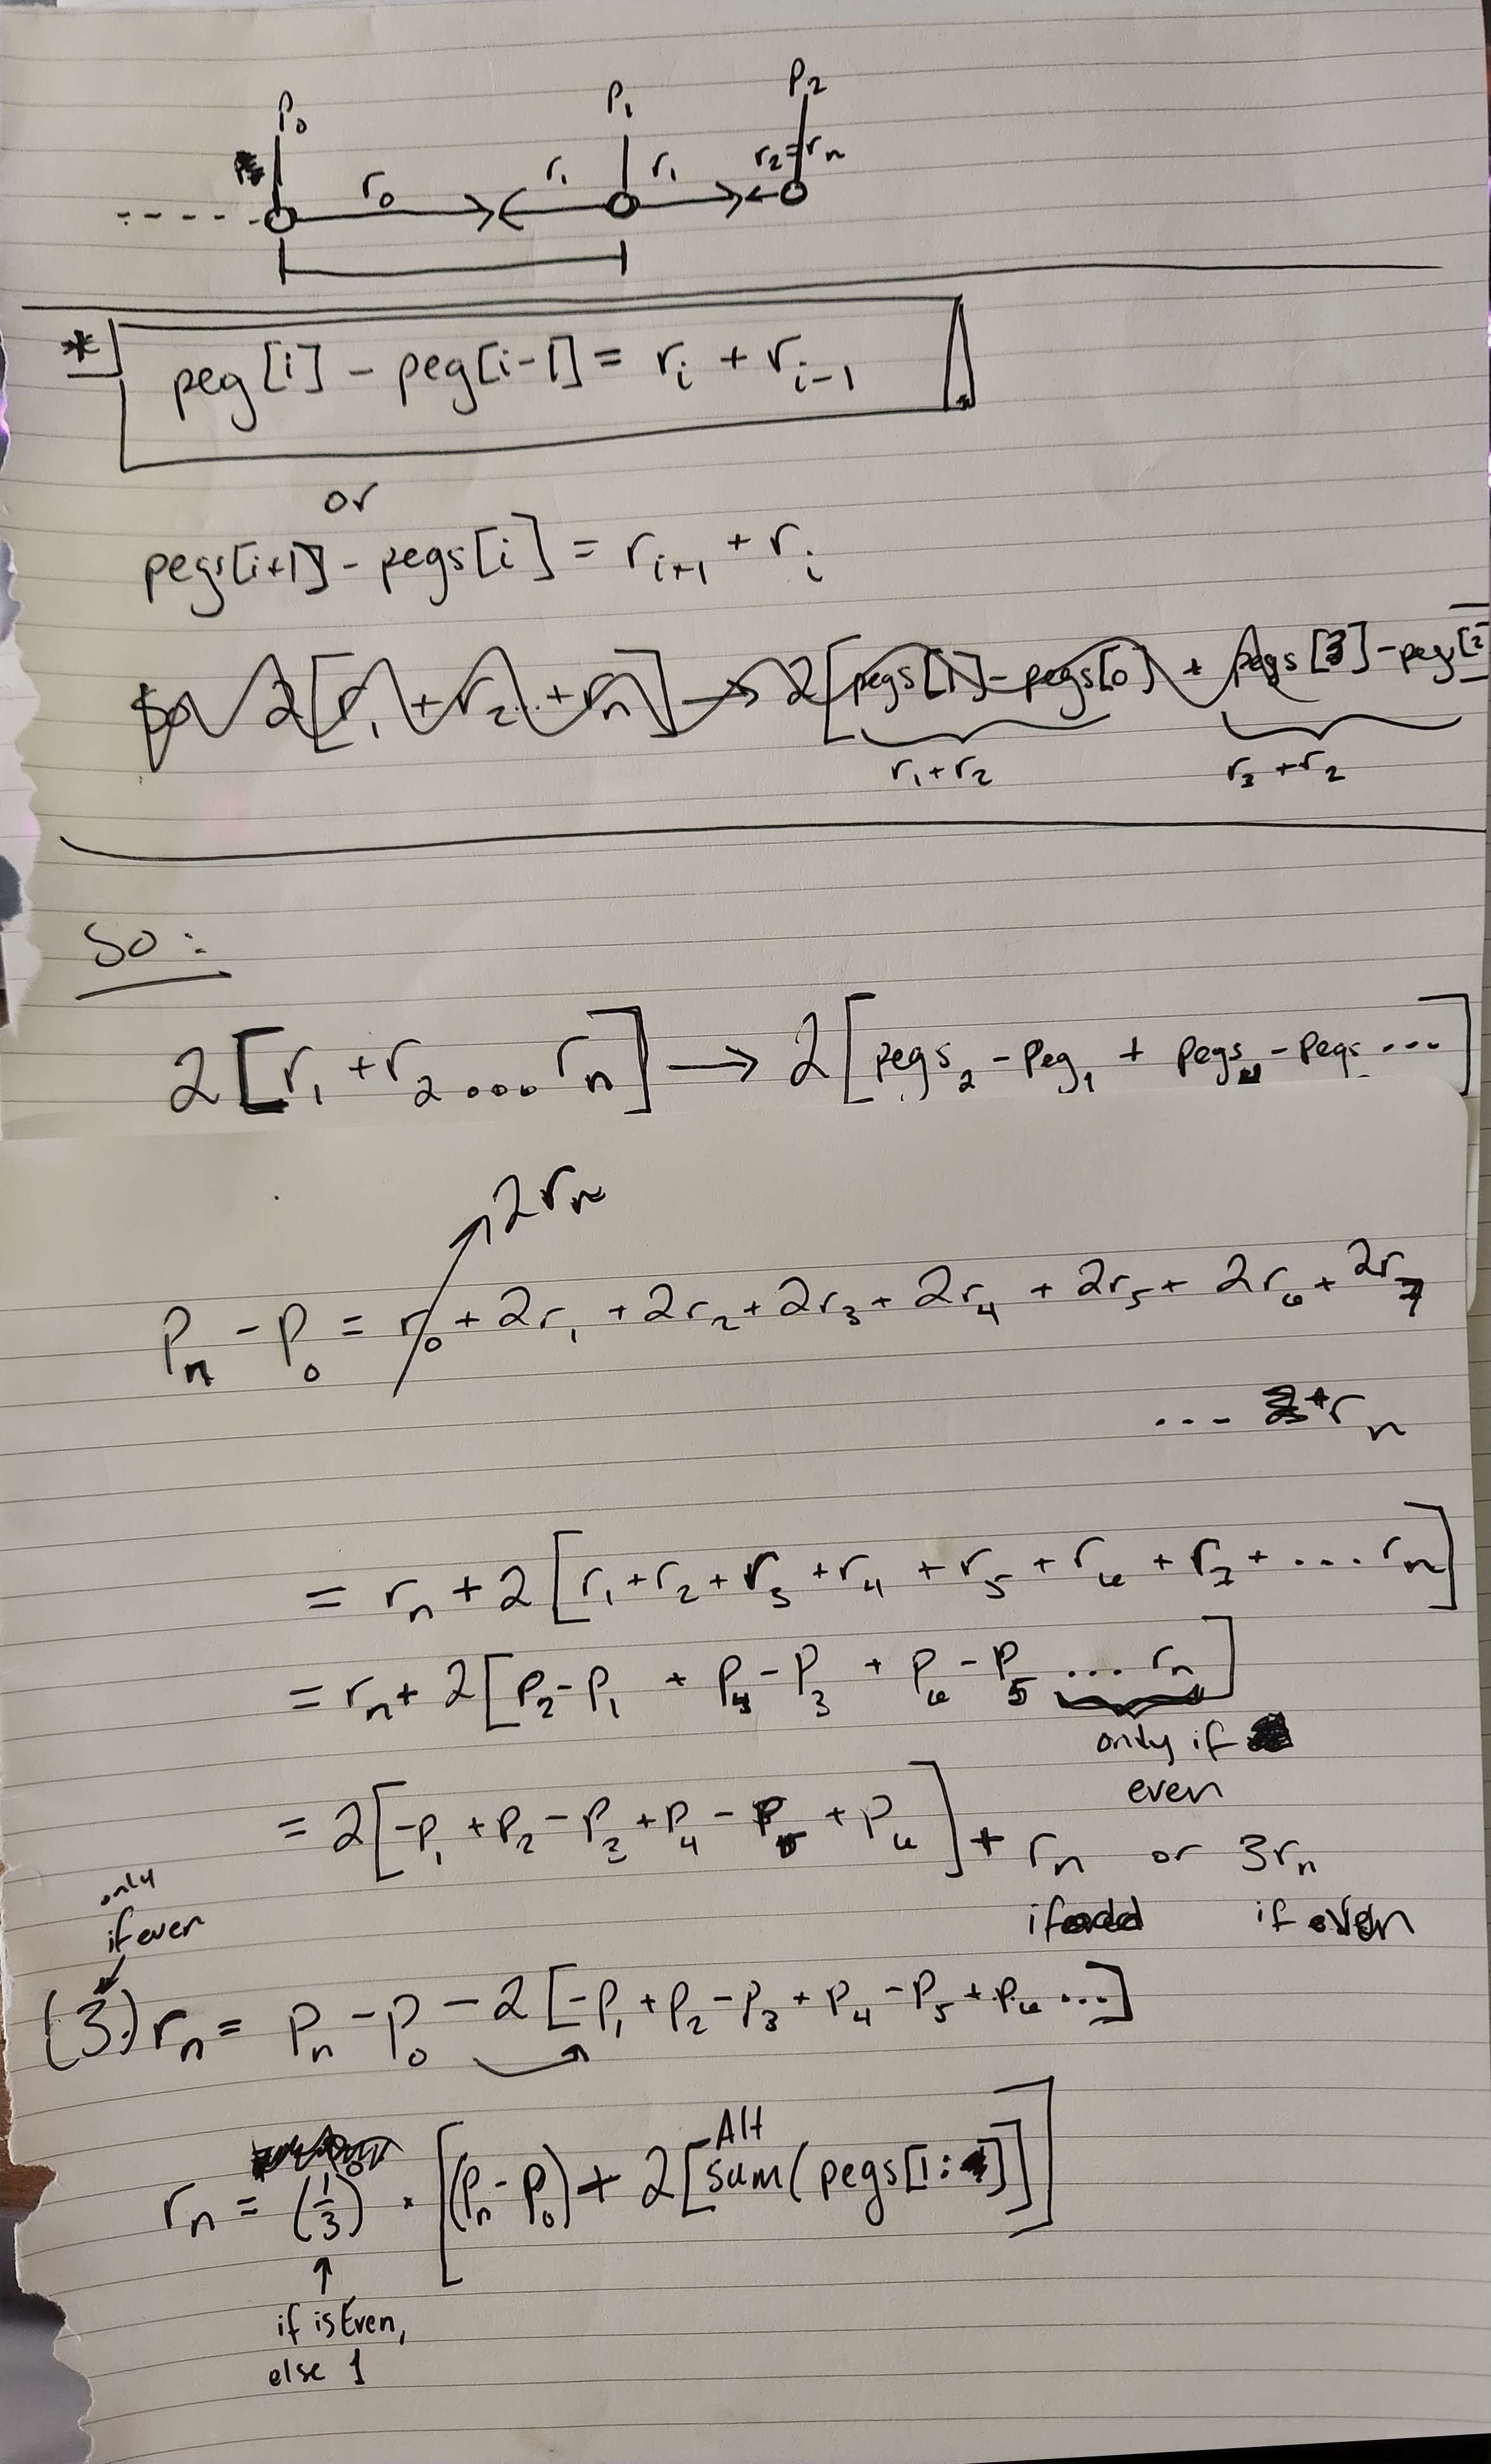 P₀ P₁ P₂
r₀ r₁ r₁ r₂=rₙ
* peg[i] - peg[i-1] = rᵢ + rᵢ₋₁
or
pegs[i+1] - pegs[i] = rᵢ₊₁ + rᵢ
so 2[r₁ + r₂..+rₙ] → 2[pegs[1] - pegs[0] + pegs[3] - pegs[2]
r₁+r₂ r₃+r₂
So:
2[r₁ + r₂ .... rₙ] → 2[pegs₂ - peg₁ + pegs₄ - pegs ...]
2rₙ
Pₙ - P₀ = r₀ + 2r₁ + 2r₂ + 2r₃ + 2r₄ + 2r₅ + 2r₆ + 2r₇
... + rₙ
= rₙ + 2[r₁ + r₂ + r₃ + r₄ + r₅ + r₆ + r₇ + .... rₙ]
= rₙ + 2[P₂-P₁ + P₄-P₃ + P₆-P₅ ... rₙ]
only if
even
= 2[-P₁ + P₂ - P₃ + P₄ - P₅ + P₆] + rₙ or 3rₙ
if odd if even
only
if even
(3)rₙ = Pₙ - P₀ - 2[-P₁ + P₂ - P₃ + P₄ - P₅ + P₆ ...]
rₙ = (1/3) · [(Pₙ - P₀) + 2[-Alt sum(pegs[1:]]]
if isEven,
else 1